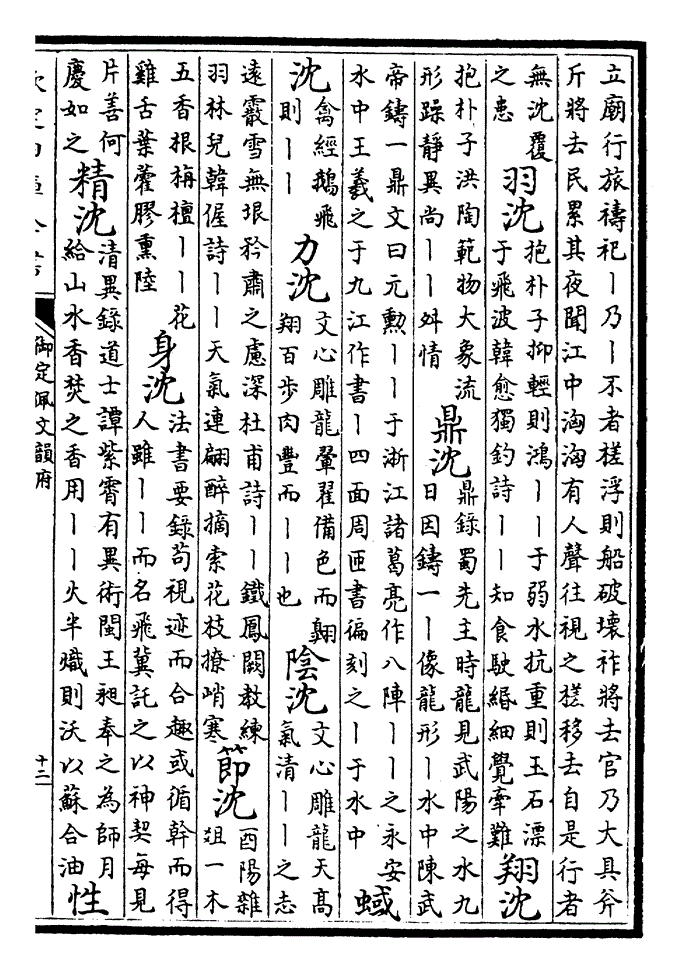 立廟行旅禱祀丨乃丨不者槎浮則船破壞祚將去官乃大具斧
斤將去民累其夜聞江中洶洶有人聲往視之槎移去自是行者
無沈覆
之患
羽沈
抱朴子抑輕則鴻丨丨于弱水抗重則玉石漂
于飛波韓愈獨釣詩丨丨知食駛緡細覺牽難
翔沈
抱朴子洪陶範物大象流
形躁靜異尚丨丨舛情
鼎沈
鼎錄蜀先主時龍見武陽之水九
日因鑄一丨像龍形丨水中陳武
帝鑄一鼎文曰元勲丨丨于浙江諸葛亮作八陣丨丨之永安
水中王羲之于九江作書丨四面周匝書徧刻之丨于水中
蜮
沈
禽經鵝飛
則丨丨
力沈
文心雕龍翬翟備色而翾
翔百步肉豐而丨丨也
陰沈
文心雕龍天高
氣清丨丨之志
遠霰雪無垠矜肅之慮深杜甫詩丨丨鐵鳳闕教練
羽林兒韓偓詩丨丨天氣連翩醉摘索花枝撩峭寒
節沈
酉陽雜
俎一木
五香根栴檀丨丨花
雞舌葉藿膠熏陸
身沈
法書要錄苟視迹而合趣或循幹而得
人雖丨丨而名飛冀託之以神契每見
片善何
慶如之
精沈
清異錄道士譚紫霄有異術閩王昶奉之為師月
給山水香焚之香用丨丨火半熾則沃以蘇合油
性
欽定四庫全書
御定佩文韻府